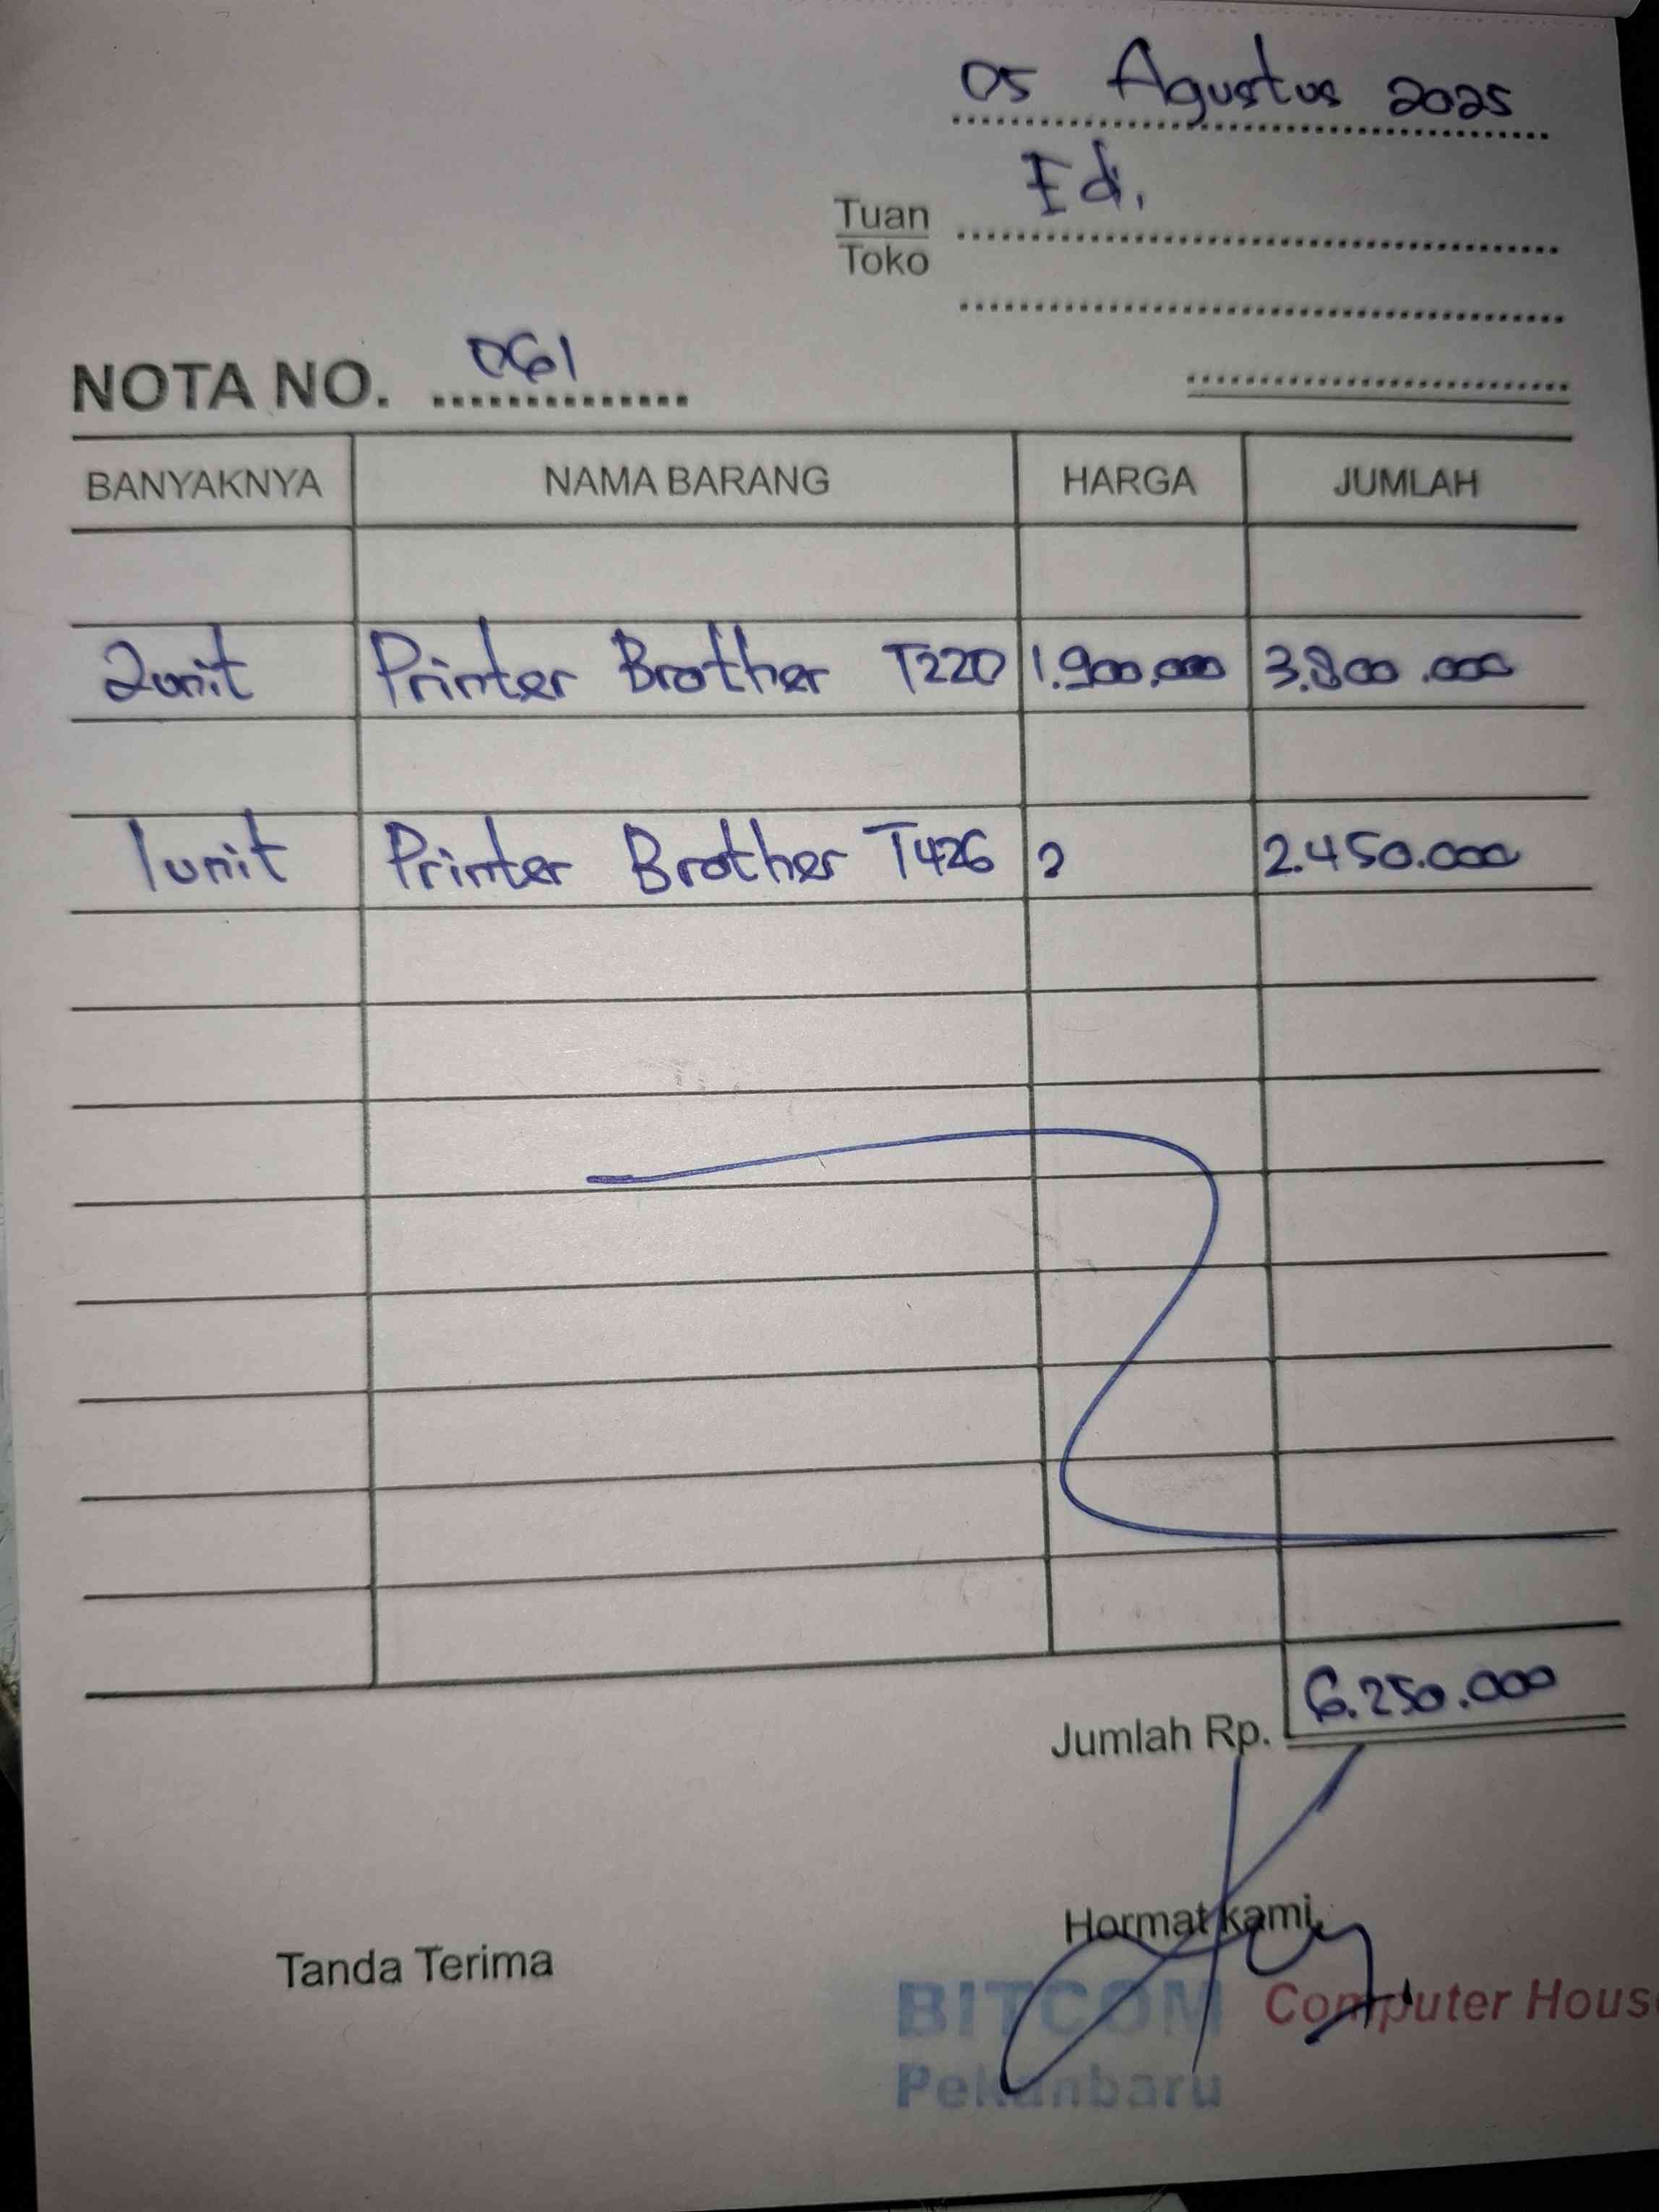 05 Agustus 2025
Tuan Edi.
Toko
NOTA NO. 061
BANYAKNYA NAMA BARANG HARGA JUMLAH
2unit Printer Brother T220 1.900.000 3.800.000
1unit Printer Brother T426 2 2.450.000
Jumlah Rp. 6.250.000
Tanda Terima Hormat kami,
BITCOM Computer Hous
Pekanbaru